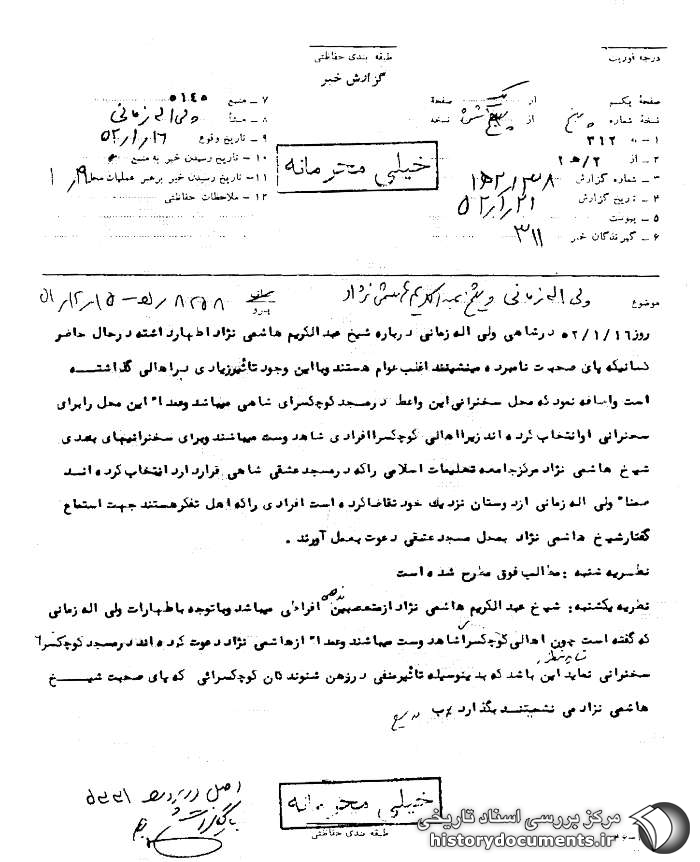 درجه فوریت
طبقه بندی حفاظتی
گزارش خبر
صفحه یکم از یک صفحه
نسخه شماره پنج از نسخه
۱ – به ۳۱۲
۲ – از ۲/ﻫ۱
۳ – شماره گزارش
۴ – تاریخ گزارش ۵۲/۱/۲۱
۵ – پیوست
۶ – گیرندگان خبر ۳۱۱
خیلی محرمانه
۷ – منبع ۵۱۴۵
۸ – منشأ ولی اله زمانی
۹ – تاریخ وقوع ۵۲/۱/۱۶
۱۰ – تاریخ رسیدن خبر به منبع
۱۱ – تاریخ رسیدن خبر برهبر عملیات محل ۱/۱۹
۱۲ – ملاحظات حفاظتی
موضوع ولی اله زمانی و شیخ عبدالکریم هاشمی نژاد
روز ۵۲/۱/۱۶ در شاهی ولی اله زمانی درباره شیخ عبدالکریم هاشمی نژاد اظهار داشته در حال حاضر
کسانیکه پای صحبت نامبرده مینشینند اغلب عوام هستند و با این وجود تأثیر زیادی بر اهالی گذاشته
است و اضافه نمود که محل سخنرانی این واعظ در مسجد کوچکسرای شاهی میباشد و عمداً این محل را برای
سخنرانی او انتخاب کرده اند زیرا اهالی کوچکسرا افرادی شاهدوست میباشند و برای سخنرانیهای بعدی
شیخ هاشمی نژاد مرکز جامعه تعلیمات اسلامی را که در مسجد عشقی شاهی قرار دارد انتخاب کرده اند
ضمناً ولی اله زمانی از دوستان نزدیک خود تقاضا کرده است افرادی را که اهل تفکر هستند جهت استماع
گفتار شیخ هاشمی نژاد بمحل مسجد عشقی دعوت بعمل آورند .
نظریه شنبه : مطالب فوق مطرح شده است
نظریه یکشنبه : شیخ عبدالکریم هاشمی نژاد از متعصبین افراطی میباشد و با توجه باظهارات ولی اله زمانی
که گفته است چون اهالی کوچکسرا شاهدوست میباشند و عمداً از هاشمی نژاد دعوت کرده اند در مسجد کوچکسرا
شاید منظور
سخنرانی نماید این باشد که بدینوسیله تأثیر منفی در ذهن شنوندگان کوچکسرائی که پای صحبت شیخ
هاشمی نژاد می نشینند بگذارد
اصل در پرونده
بایگانی
خیلی محرمانه
طبقه بندی حفاظتی
مرکز بررسی اسناد تاریخی
historydocuments.ir